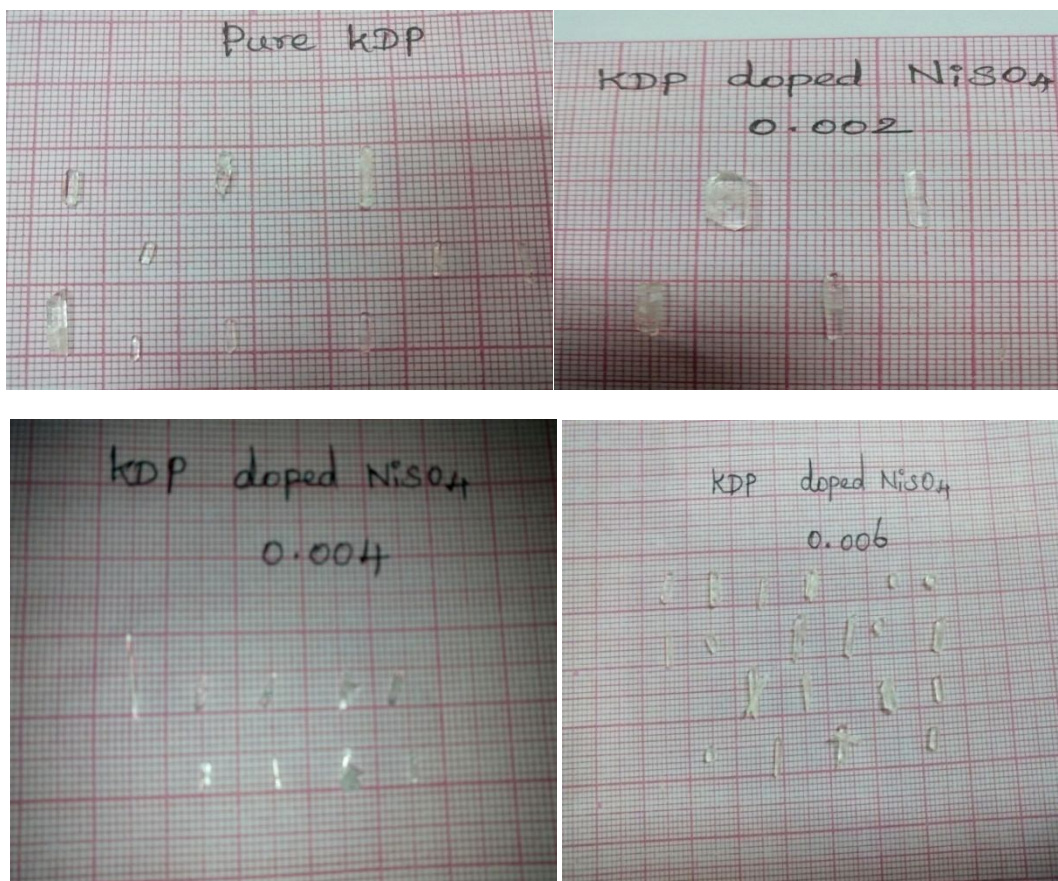 Pure KDP
KDP doped NiSO4
0.002
KDP doped NiSO4
0.004
KDP doped NiSO4
0.006